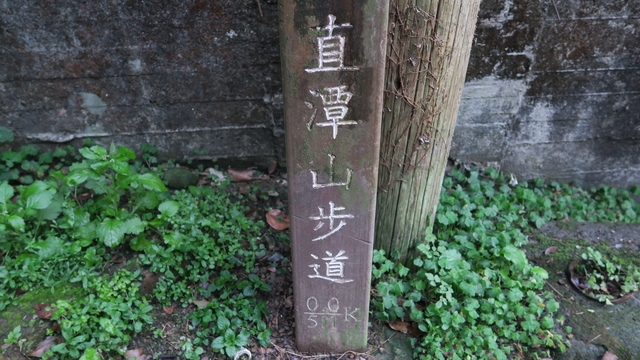 直潭山步道
0.0K